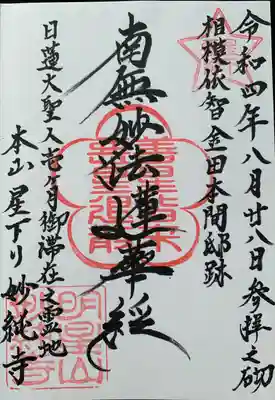 令和四年八月廿八日参拝之砌
相模依智金田本間邸跡
南無妙法蓮華経
日蓮大聖人壱ヶ月御滞在之霊地
本山星下り妙純寺
明星山